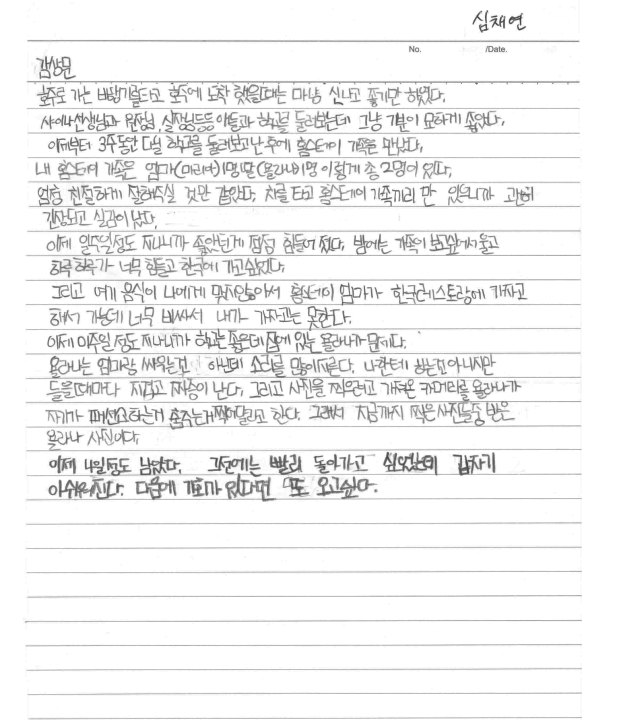 심채연
No. /Date.
감상문
호주로 가는 비행기를타고 호주에 도착 했을때는 마냥 신나고 좋기만 하였다.
샤이나선생님과 원장님, 실장님등등 아들과 학교를 둘러보는데 그냥 기분이 묘하게 좋았다.
이제부터 3주동안 다닐 학교를 둘러보고난 후에 홈스테이 가족을 만났다.
내 홈스테이 가족은 엄마(마리아)1명,딸(욜라나)1명 이렇게 총 2명이 있다.
엄청 친절하게 잘해주실 것만 같았다. 차를 타고 홈스테이 가족끼리 만 있으니까 괜히
긴장되고 실감이 났다.
이제 일주일정도 지나니까 좋았던게 점점 힘들어 졌다. 밤에는 가족이 보고싶어서 울고
하루하루가 너무 힘들고 한국에 가고싶었다.
그리고 여기 음식이 나에게 맞지않아서 홈스테이 엄마가 한국레스토랑에 가자고
해서 가는데 너무 비싸서 내가 가자고는 못한다.
이제 이주일 정도 지나니까 학교는 좋은데 집에 있는 욜라나가 문제다.
욜라나는 엄마랑 싸우는건 아닌데 소리를 많이지른다. 나한테 하는건아니지만
들을때마다 지겹고 짜증이 난다, 그리고 사진을 찍으려고 가져온 카메라를 욜라나가
자기가 패션쇼하는거 춤추는거 찍어달라고 한다. 그래서 지금까지 찍은사진들중 반은
욜라나 사진이다.
이제 4일정도 남았다. 그전에는 빨리 돌아가고 싶었는데 갑자기
아쉬워진다. 다음에 기회가 있다면 또 오고싶다.